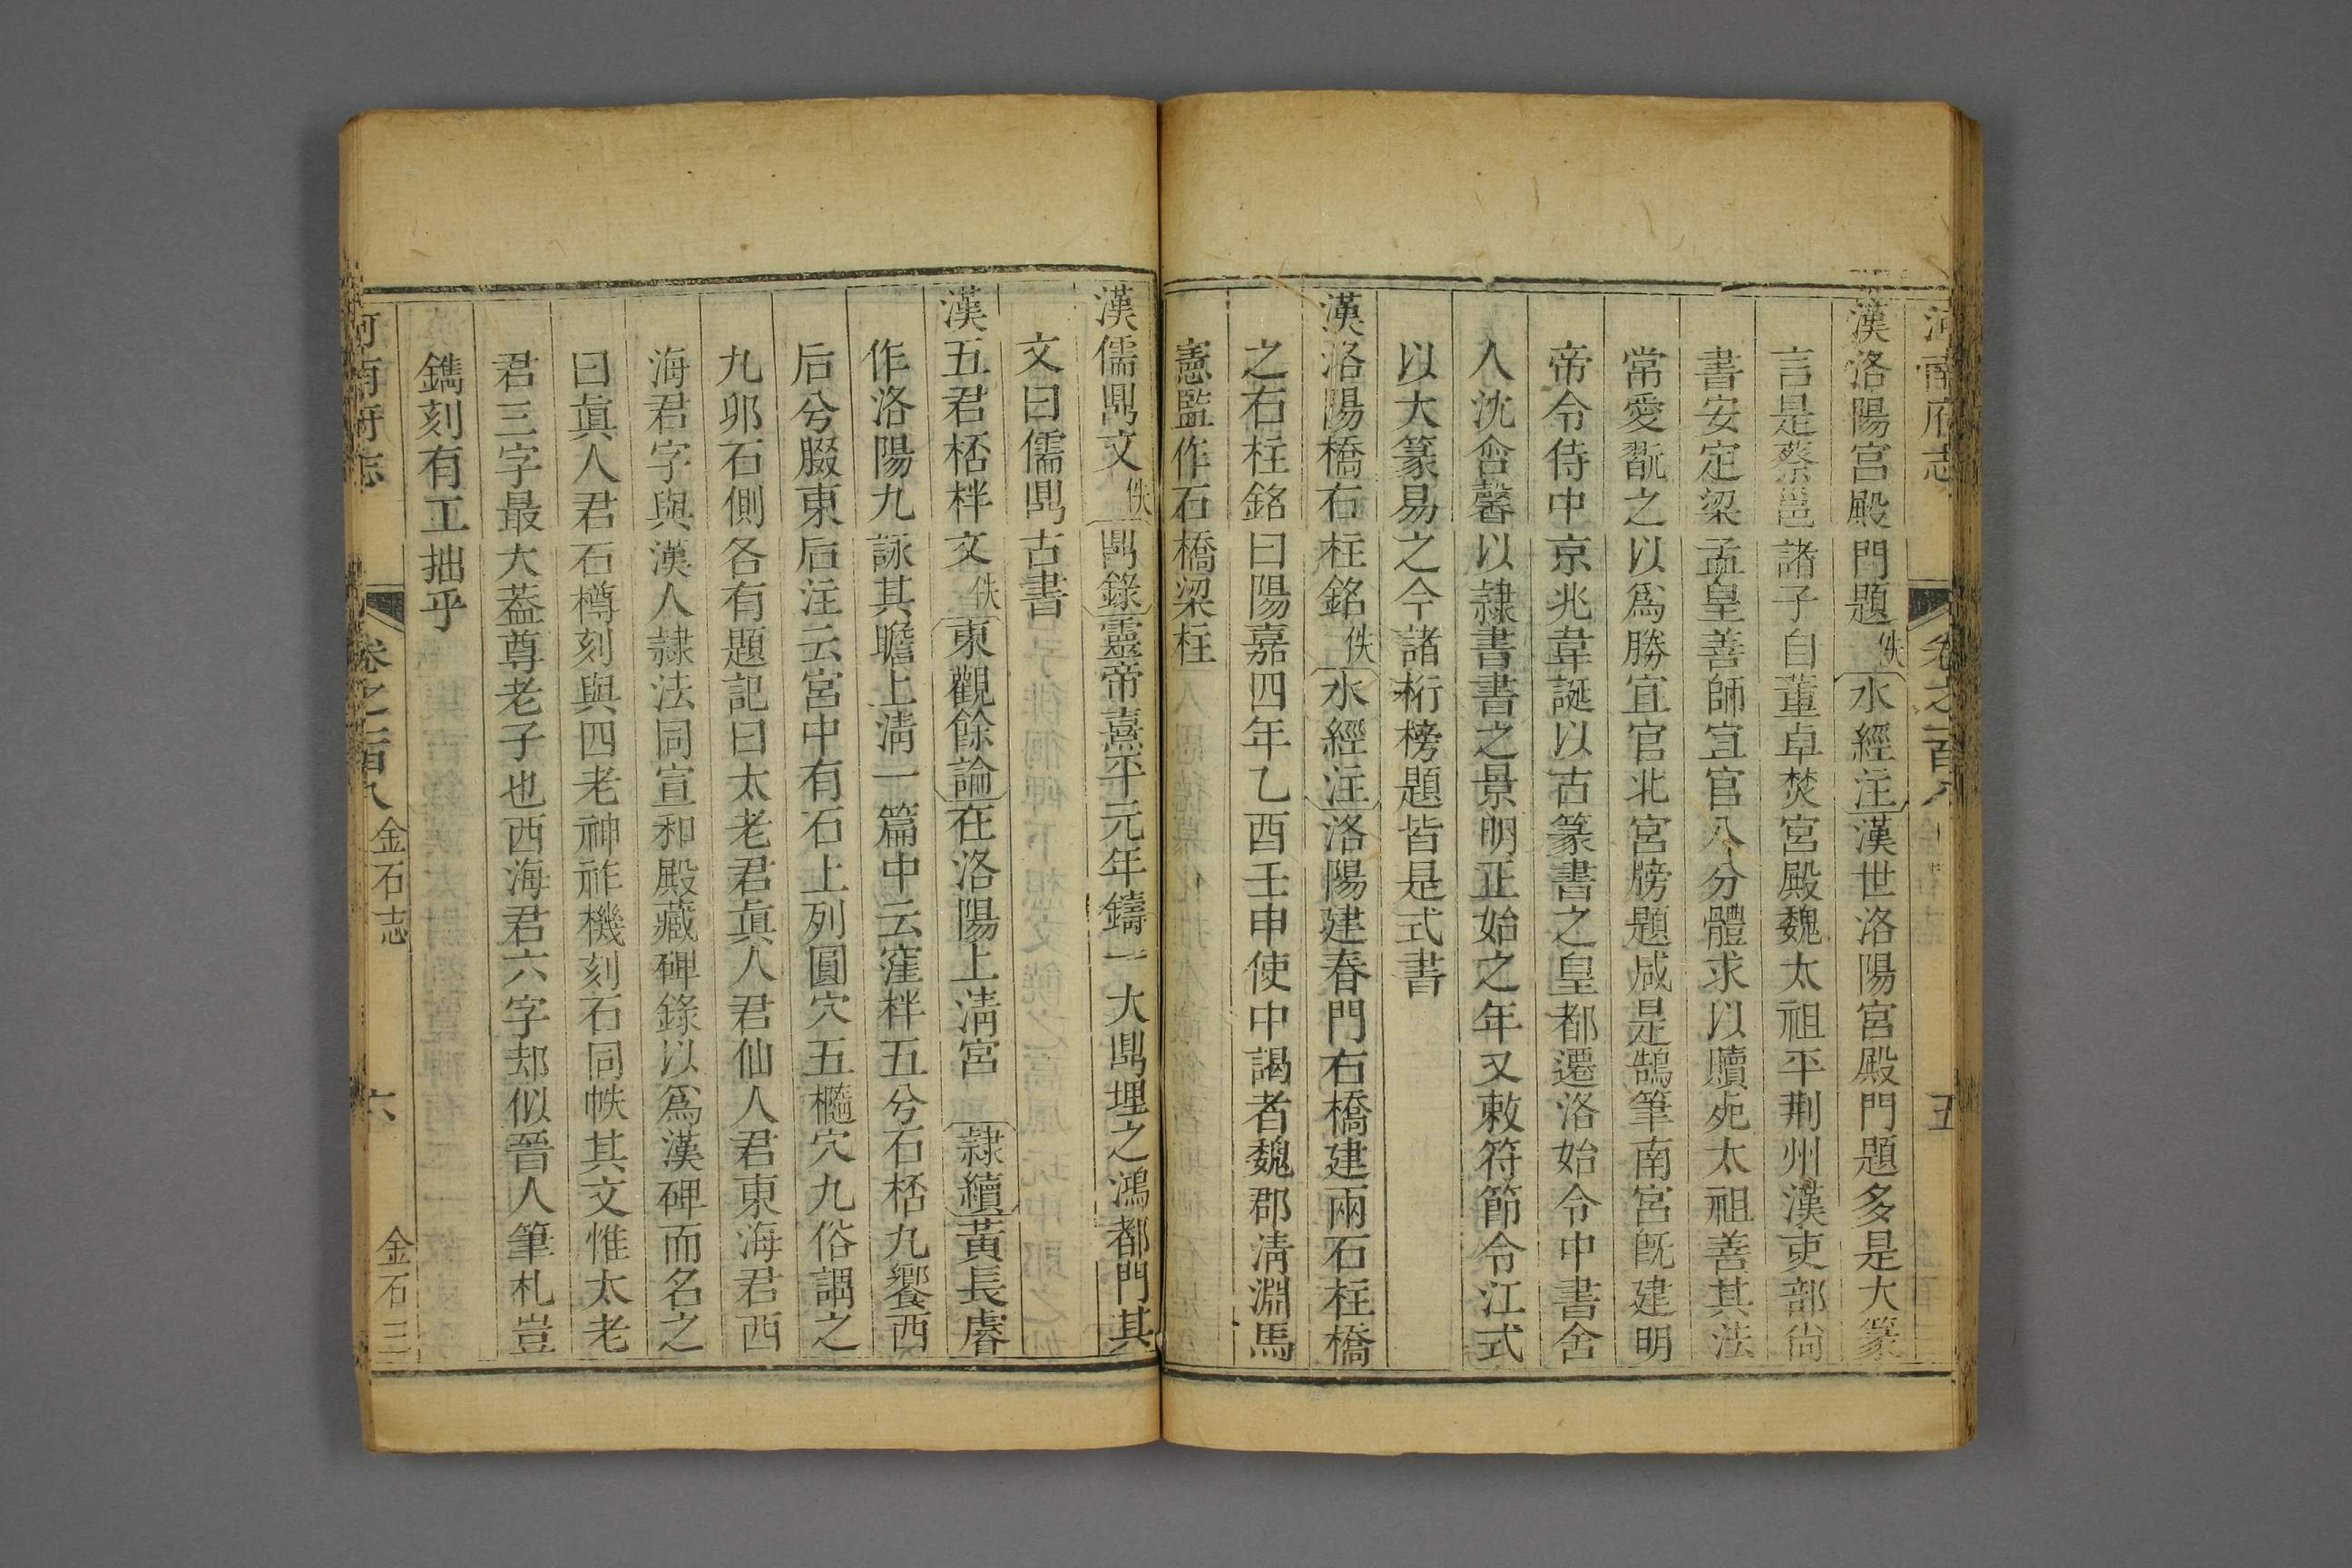 河南府志 卷之一百八 五
漢洛陽宮殿門題佚水經注漢世洛陽宮殿門題多是大篆
言是蔡邕諸子自董卓焚宮殿魏太祖平荆州漢吏部尙
書安定梁孟皇善師宜官八分體求以贖死太祖善其法
常愛翫之以爲勝宜官北宮牓題咸是鵠筆南宮旣建明
帝令侍中京兆韋誕以古篆書之皇都遷洛始令中書舍
人沈含馨以隷書書之景明正始之年又敕符節令江式
以大篆易之今諸桁榜題皆是式書
漢洛陽橋右柱銘佚水經注洛陽建春門右橋建兩石柱橋
之右柱銘曰陽嘉四年乙酉壬申使中謁者魏郡淸淵馬
憲監作石橋梁柱
漢儒鼎文佚鼎錄靈帝熹平元年鑄一大鼎埋之鴻都門其
文曰儒鼎古書
漢五君桮柈文佚東觀餘論在洛陽上淸宮 隷續黃長睿
作洛陽九詠其瞻上淸一篇中云窪柈五兮石桮九饗西
后兮腏東后注云宮中有石上列圓穴五橢穴九俗謂之
九卵石側各有題記曰太老君眞人君仙人君東海君西
海君字與漢人隷法同宣和殿藏碑錄以爲漢碑而名之
曰眞人君石樽刻與四老神祚機刻石同帙其文惟太老
君三字最大葢尊老子也西海君六字却似晉人筆札豈
鐫刻有工拙乎
河南府志 卷之一百八 金石志 六 金石三